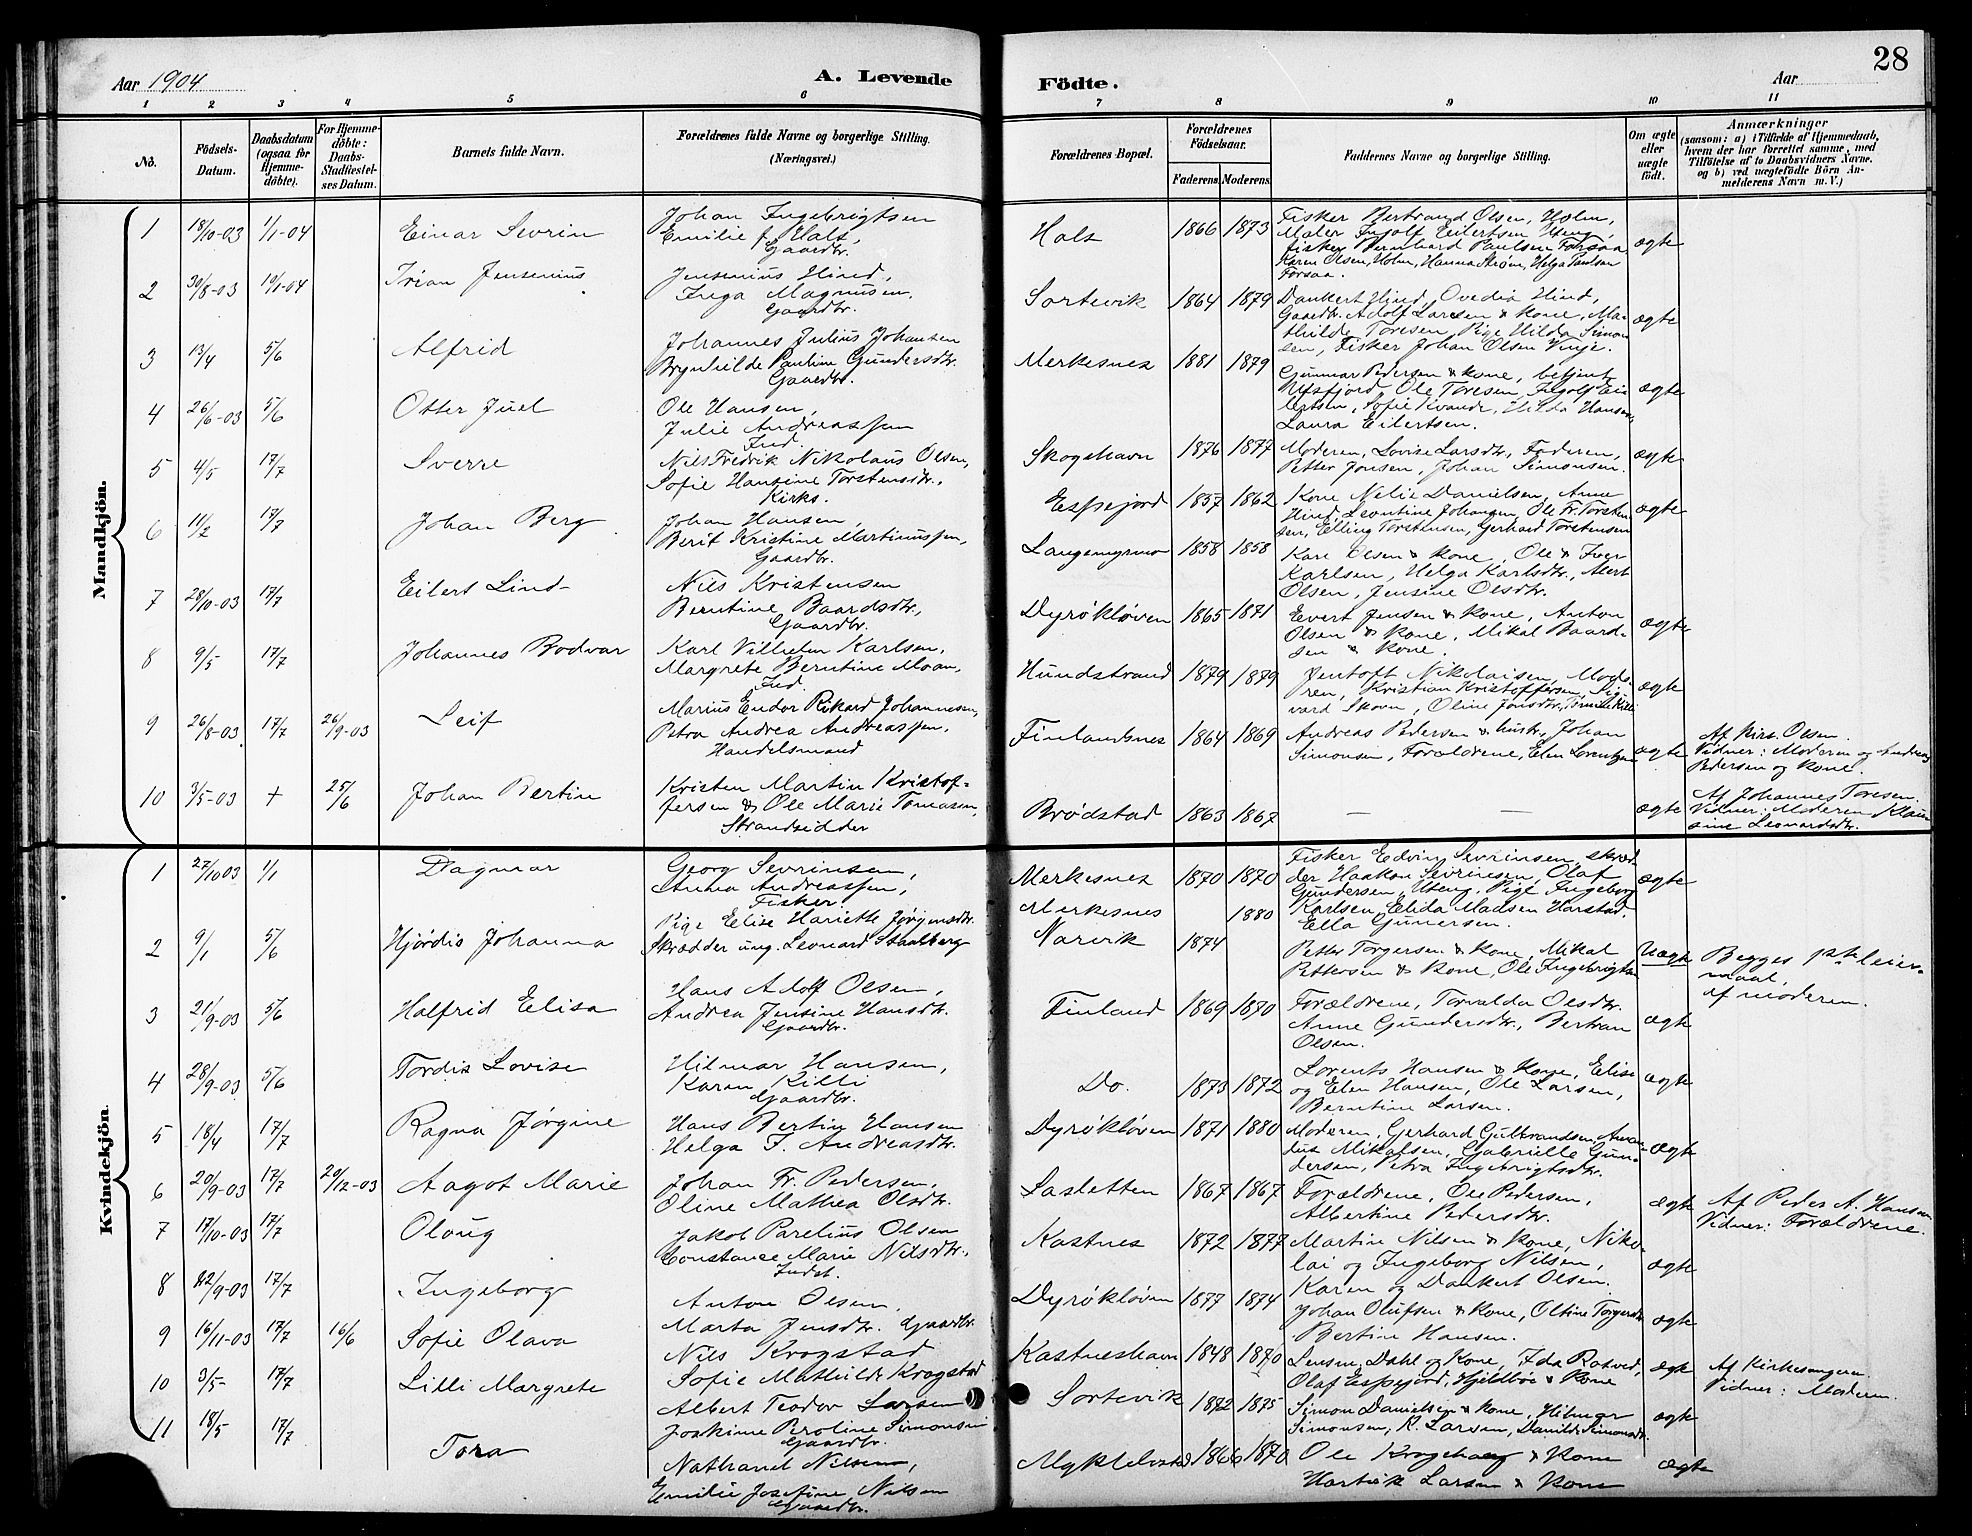 28
Aar 1904
A. Levende
Födte.
Aar
1 2 3 4 5 6 7 8 9 10 11
No.
Födsels-
Datum.
Daabsdatum
(ogsaa for
Hjemme-
döbte).
For Hjemme-
döbte:
Daabs-
Stadfestel-
ses Datum.
Barnets fulde Navn.
Forældrenes fulde Navne og borgerlige Stilling.
(Næringsvei.)
Forældrenes Bopæl.
Forældrenes
Födselsaar.
Faderens. Moderens.
Faddernes Navne og borgerlige Stilling.
Om ægte
eller
uægte
födt.
Anmærkninger
(saasom: a) i Tilfælde af Hjemmedaab,
hvem der har forrettet samme, med
Tilföielse af to Daabsvidners Navne,
og b) ved uægtefödte Börn An-
melderens Navn m. V.)
Mandkjön.
1 18/10-03 1/1-04 Einar Sevrin
Johan Ingebrigtsen
Emilie f. Hals,
Gaardbr.
Hals 1866 1873
Fisker Bertrand Olsen, Holm,
Maler Ingolf Eilertsen Uteng,
fisker Bernhard Paulsen Forsaa,
Karen Olsen, Holm, Hanna Strøm, Helga Paulsen
Forsaa.
ægte
2 30/8-03 19/1-04 Trian Jensenius
Jensenius Hind,
Inga Magnusen.
Gaardbr.
Sortevik 1864 1879
Dankert Hind, Ovedia Hind,
Gaardbr. Adolf Larsen & Kone, Ma-
thilde Toresen, Pige Hilda Simon
sen, Fisker Johan Olsen Vinje.
ægte
3 13/4 5/6 Alfrid
Johannes Julius Johansen
Brynhilde Paulina Gundersdtr.
Gaardbr.
Merkesnes 1881 1879
Gunnar Pedersen & Kone, betjent
Ufsfjord, Ole Toresen, Ingolf Ei-
lertsen, Sofie Sivande, Hilda Hansen,
Laura Eilertsen.
ægte
4 26/6-03 5/6 Otter Juel
Ole Hansen,
Julie Andreassen
Ind.
Skogshavn 1876 1877
Moderen, Lovise Larsdtr, Faderen,
Petter Jonsen, Johan Simonsen.
ægte
5 4/5 17/7 Sverre
Nils Fredrik Nikolaus Olsen,
Sofie Hansine Torstensdtr.
Kirks.
Espejord 1857 1862
Kone Nelie Danielsen, Anne
Hind, Leontine Johansen, Ole Fr. Torsten
sen, Elling Torstensen, Gerhard Torstensen
ægte
6 11/2 17/7 Johan Berg
Johan Hansen,
Berit Kristine Martinussen,
Gaardbr.
1858 1858
Kare Olsen & Kone, Ole & Iver
Karlsen, Helga Karlsdtr.,
Olsen, Jensine Olsdtr.
7 28/10-03 17/7 Eilert Lind
Nils Kristensen
Berntine Baardsdtr,
Gaardbr.
Dyrøkløven 1865 1871
Evert Jensen & Kone, Anton
Olsen & Kone, Mikal Baard-
sen & Kone.
ægte
8 9/5 17/7 Johannes Bodvar
Karl Vilhelm Karlsen,
Margrete Berntine Moan,
Ind.
Hundstrand 1879 1879
Jentoft Nikolaisen, Mode-
ren, Kristian Kristoffersen, Sig-
vard Skovn, Oline Jonsdtr,
ægte
9 26/8-03 17/7 26/9-03 Leif
Marius Endor Rikard Johannesen,
Petra Andrea Andreassen.
Handelsmand
Finlandsnes 1864 1869
Andreas Pedersen & hustr, Johan
Simonsen, Forældrene, Elen Lorentzen
ægte
Af Kirk. Olsen.
Vidner: Moderen og Andreas
Pedersen og Kone.
10 3/5-03 + 25/6 Johan Bertin
Kristen Martin Kristof-
fersen & Ole Marie Tomassen,
Strandsidder
Brødstad 1863 1867
— —
ægte
Af Johannes Toresen
Vidner: Moderen Klau
sine Leonardsdtr.
Kvindekjön.
1 27/10 03 1/1 Dagmar
Georg Sevrinsen,
Anna Andreassen,
Fisker.
Merkesnes 1870 1870
Fisker Edvin Sevrinsen, skræd-
der Haakon Sevrinsen, Olaf
Gundersen, Uteng, Pige Ingeborg
Karlsen, Elida Madsen Harstad,
Ella Gunersen.
ægte
2 9/1 5/6 Hjørdis Johanna
Pige Elise Hariette Jørgensdtr.
Skrædder ung. Leonard Staalberg
Merkesnes 1880
Narvik 1874
Petter Torgersen & Kone, Mikal
Pettersen & Kone, Ole Ingebrigtsen
Uægte
Begges 1ste leier-
maal,
af moderen.
3 21/9-03 5/6 Halfrid Elisa
Hans Adolf Olsen,
Andrea Jensine Hansdtr.
Gaardbr.
Finland 1869 1870
Forældrene, Torvalda Olsdtr.
Anne Gundersdtr., Bertran
Olsen.
ægte
4 28/9-03 5/6 Tordis Lovise
Hilmar Hansen,
Karen Killi
Gaardbr.
Do. 1873 1872
Lorents Hansen & Kone, Elise
og Elen Hansen, Ole Larsen,
Berntine Larsen.
ægte
5 18/4 17/7 Ragna Jørgine
Hans Bertin Hansen
Helga F. Andreasdtr.
Dyrøkløven 1871 1880
Moderen, Gerhard Gulbrandsen, Aman-
dus Mikalsen, Gabrielle Gun-
dersen, Petra Ingebrigtsdtr.
ægte
6 20/9-03 17/7 20/12-03 Aagot Marie
Johan Fr. Pedersen,
Oline Mathea Olsdtr.
Lasletten 1867 1867
Forældrene, Ole Pedersen,
Albertine Pedersdtr.
ægte
Af Peder A. Hansen
Vidner: Forældrene.
7 17/10-03 17/7 Oloug
Jakob Parelius Olsen
Constance Marie Nilsdtr.
Indst.
Kastnes 1872 1877
Martin Nilsen & Kone, Niko-
lai og Ingeborg Nilsen,
Karen og Dankert Olsen.
ægte
8 22/9-03 17/7 Ingeborg
Anton Olsen,
Marta Jensdtr. Gaardbr.
Dyrøkløven 1877 1874
Johan Olufsen & Kone, Oltine Torgersdtr
Bertine Hansen.
ægte
9 16/11-03 17/7 16/6 Sofie Olava
Nils Krogstad
Sofie Mathilde Krogstad
Kastneshavn 1848 1870
Lensm. Dahl og Kone, Ida Rotvid,
Olaf Espejord, Hjeldbøe & Kone
ægte
Af Kirkesangeren
Vidner: Moderen.
10 3/5 17/7 Lilli Margrete
Albert Teodor Larsen
Joakime Peroline Simonsen
Gaardbr.
Sortevik 1872 1875
Simon Danielsen & Kone, Hilmar
Simonsen, K. Larsen, Danilde Simonsdtr.
ægte
11 18/5 17/7 Tora
Nathanel Nilsen,
Emilie Josefine Nilsen
Gaardbr.
Mykkelvold 1866 1870
Ole Krogehaug & Kone
Hartvik Larsen & Kone
ægte